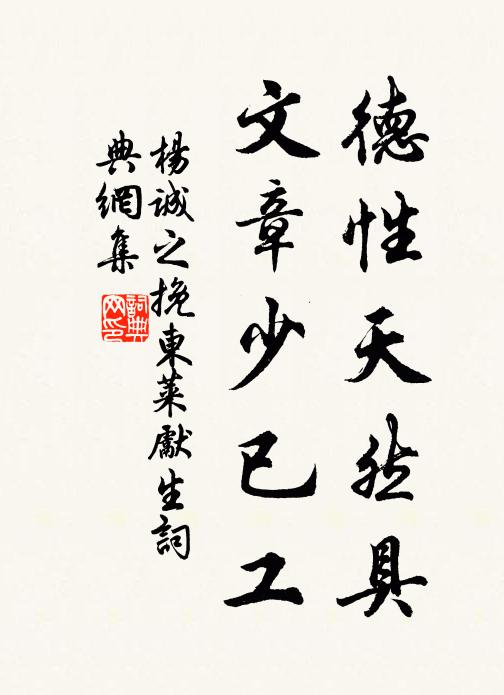 德性天然具
文章少已工
楊誠之挽東萊獻生詞
典網集
詞典
网印